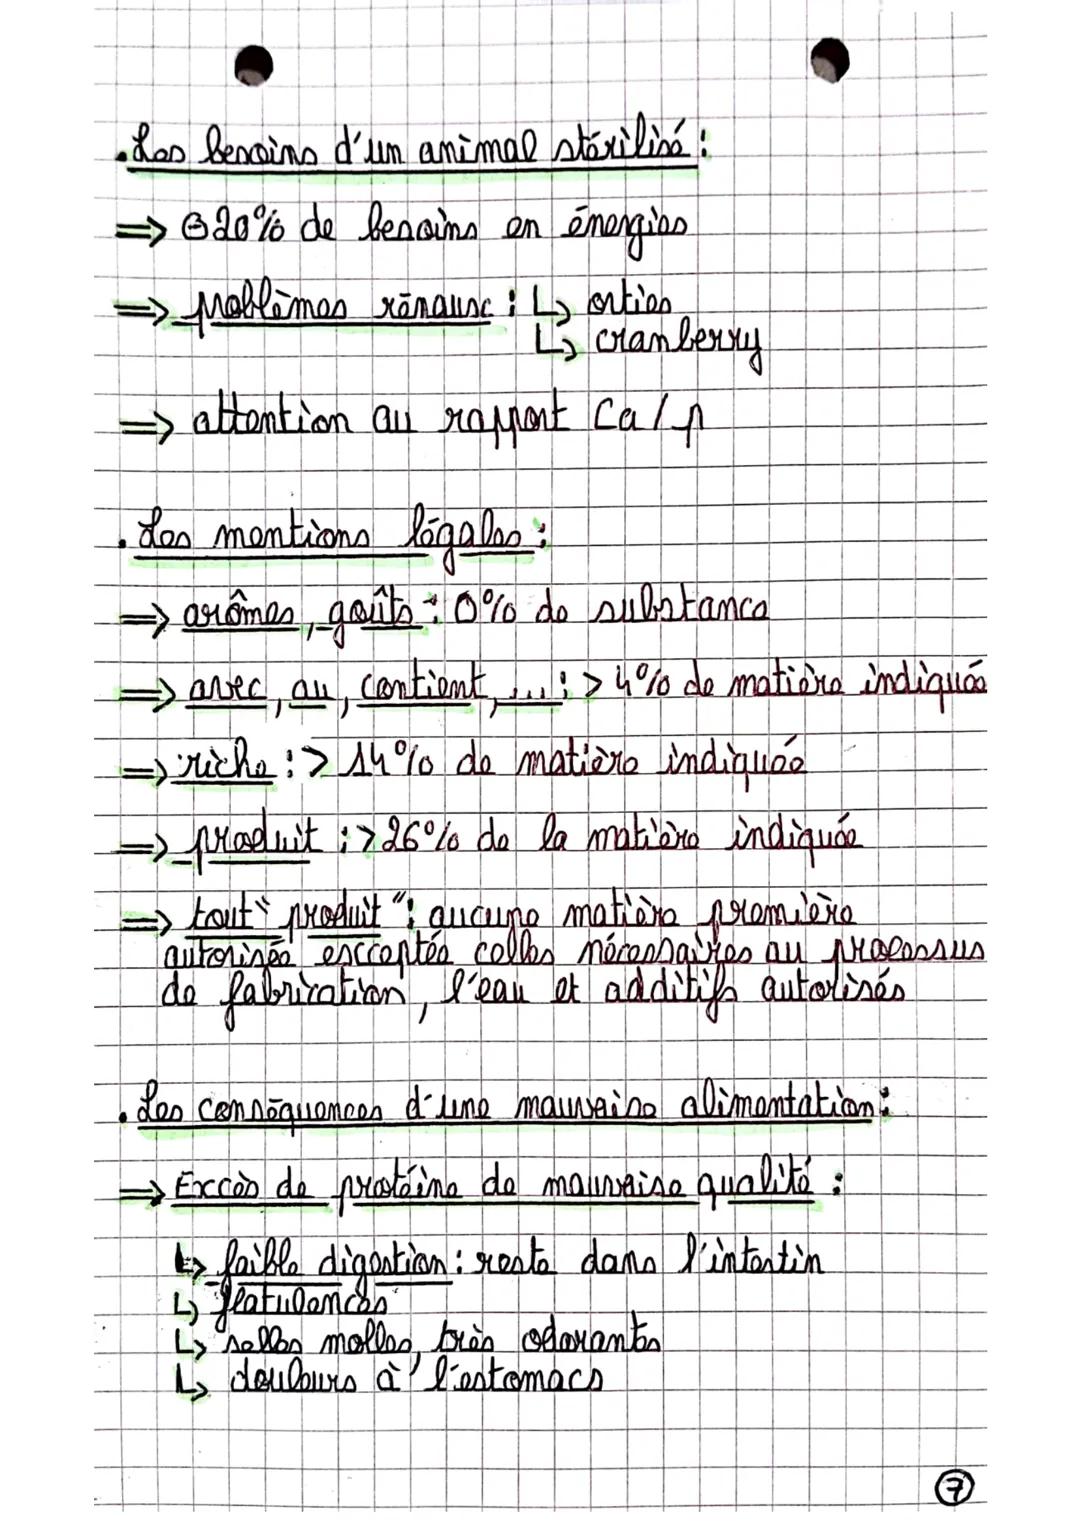 . Les besoins d'un animal stérilisé :
⇒ ⊖20% de besoins en énergies
⇒ problèmes rénaux : ↳ orties
↳ cranberry
⇒ attention au rapport Ca/p
. Les mentions légales :
⇒ arômes, goûts : 0% de substance
⇒ avec, au, contient, ... : > 4% de matière indiquée
⇒ riche : > 14% de matière indiquée
⇒ produit : > 26% de la matière indiquée
⇒ tout "produit" : aucune matière première
autorisée exceptée celles nécessaires au processus
de fabrication, l'eau et additifs autorisés
. Les conséquences d'une mauvaise alimentation :
⇒ Excès de protéine de mauvaise qualité :
↳ faible digestion : reste dans l'intestin
↳ flatulences
↳ selles molles, très odorantes
↳ douleurs à l'estomacs
7